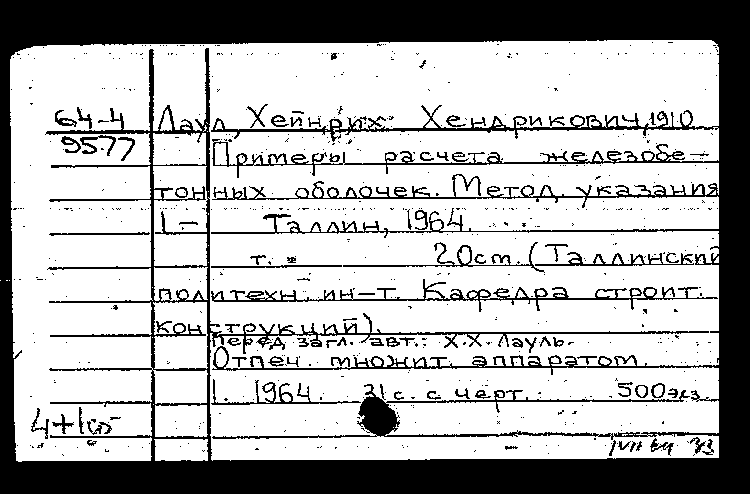 64-4 Лаул, Хейнрих Хендрикович, 1910
9577
Примеры расчета железобе-
тонных оболочек. Метод. указания
1- Таллин, 1964.
т. - 20 ст. (Таллинский
политехн. ин-т. Кафедра строит.
конструкций).
Перед загл. авт.: Х.Х. Лауль.
Отпеч. множит. аппаратом.
1. 1964. 31 с. с черт. 500 экз.